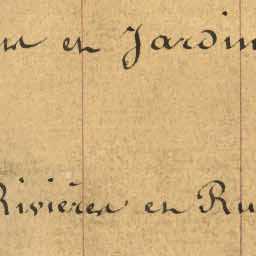 en Jardin
Rivières en Ru